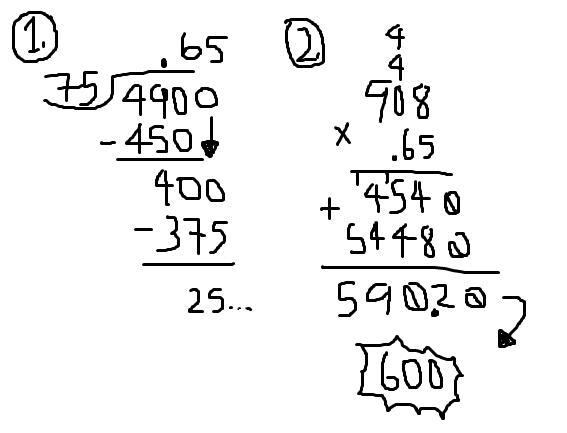 1.
.65
75 4900
- 450
400
- 375
25...
2
4
4
908
x .65
4540
+ 54480
590.20
600